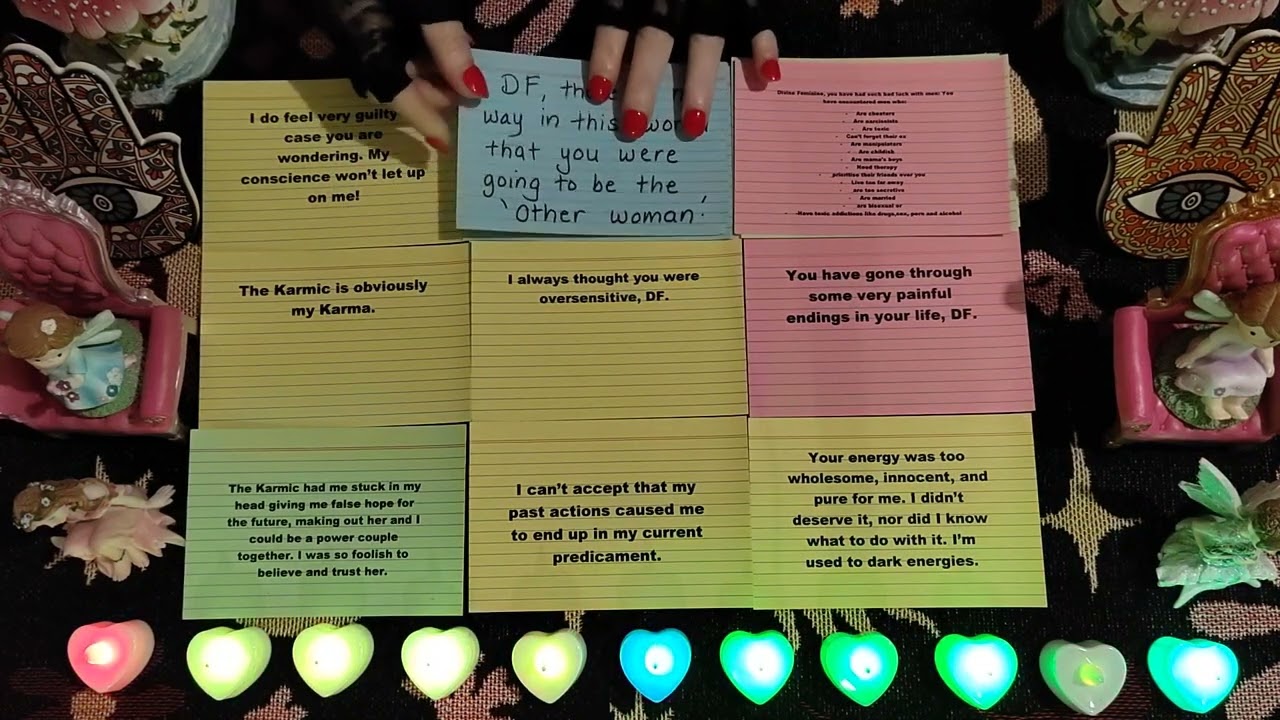 I do feel very guilty
case you are
wondering. My
conscience won't let up
on me!
DF,
way in this
that you were
going to be the
'Other woman'.
Divine Feminine, you have had such bad luck with men! You
have encountered men who:
- Are cheaters
- Are narcissists
- Are toxic
- Can't forget their ex
- Are manipulators
- Are childish
- Are mama's boys
- Need therapy
- prioritise their friends over you
- Live too far away
- are too secretive
- Are married
- are bisexual or
-Have toxic addictions like drugs,sex, porn and alcohol
The Karmic is obviously
my Karma.
I always thought you were
oversensitive, DF.
You have gone through
some very painful
endings in your life, DF.
The Karmic had me stuck in my
head giving me false hope for
the future, making out her and I
could be a power couple
together. I was so foolish to
believe and trust her.
I can't accept that my
past actions caused me
to end up in my current
predicament.
Your energy was too
wholesome, innocent, and
pure for me. I didn't
deserve it, nor did I know
what to do with it. I'm
used to dark energies.